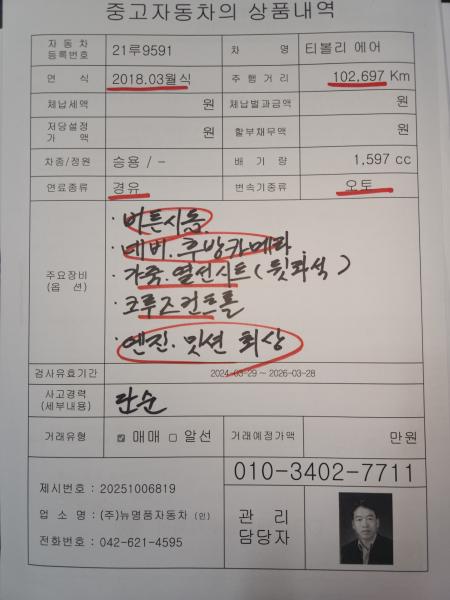 중고자동차의 상품내역
자 동 차 등록번호 21루9591 차 명 티볼리 에어
연 식 2018.03월식 주 행 거 리 102,697 Km
체납세액 원 체납벌과금액 원
저당설정 가 액 원 할부채무액 원
차종/정원 승용 / - 배 기 량 1,597 cc
연료종류 경유 변속기종류 오토
주요장비 (옵 션)
· 버튼시동.
· 네비. 후방카메라.
· 가죽. 열선시트 (뒷좌석)
· 크루즈컨트롤
· 엔진. 밋션 최상
검사유효기간 2024-03-29 ~ 2026-03-28
사고경력 (세부내용) 단순
거래유형 ☑ 매매 □ 알선 거래예정가액 만원
010-3402-7711
제시번호 : 20251006819
업 소 명 : (주)뉴명품자동차 (인)
전화번호 : 042-621-4595
관 리
담당자